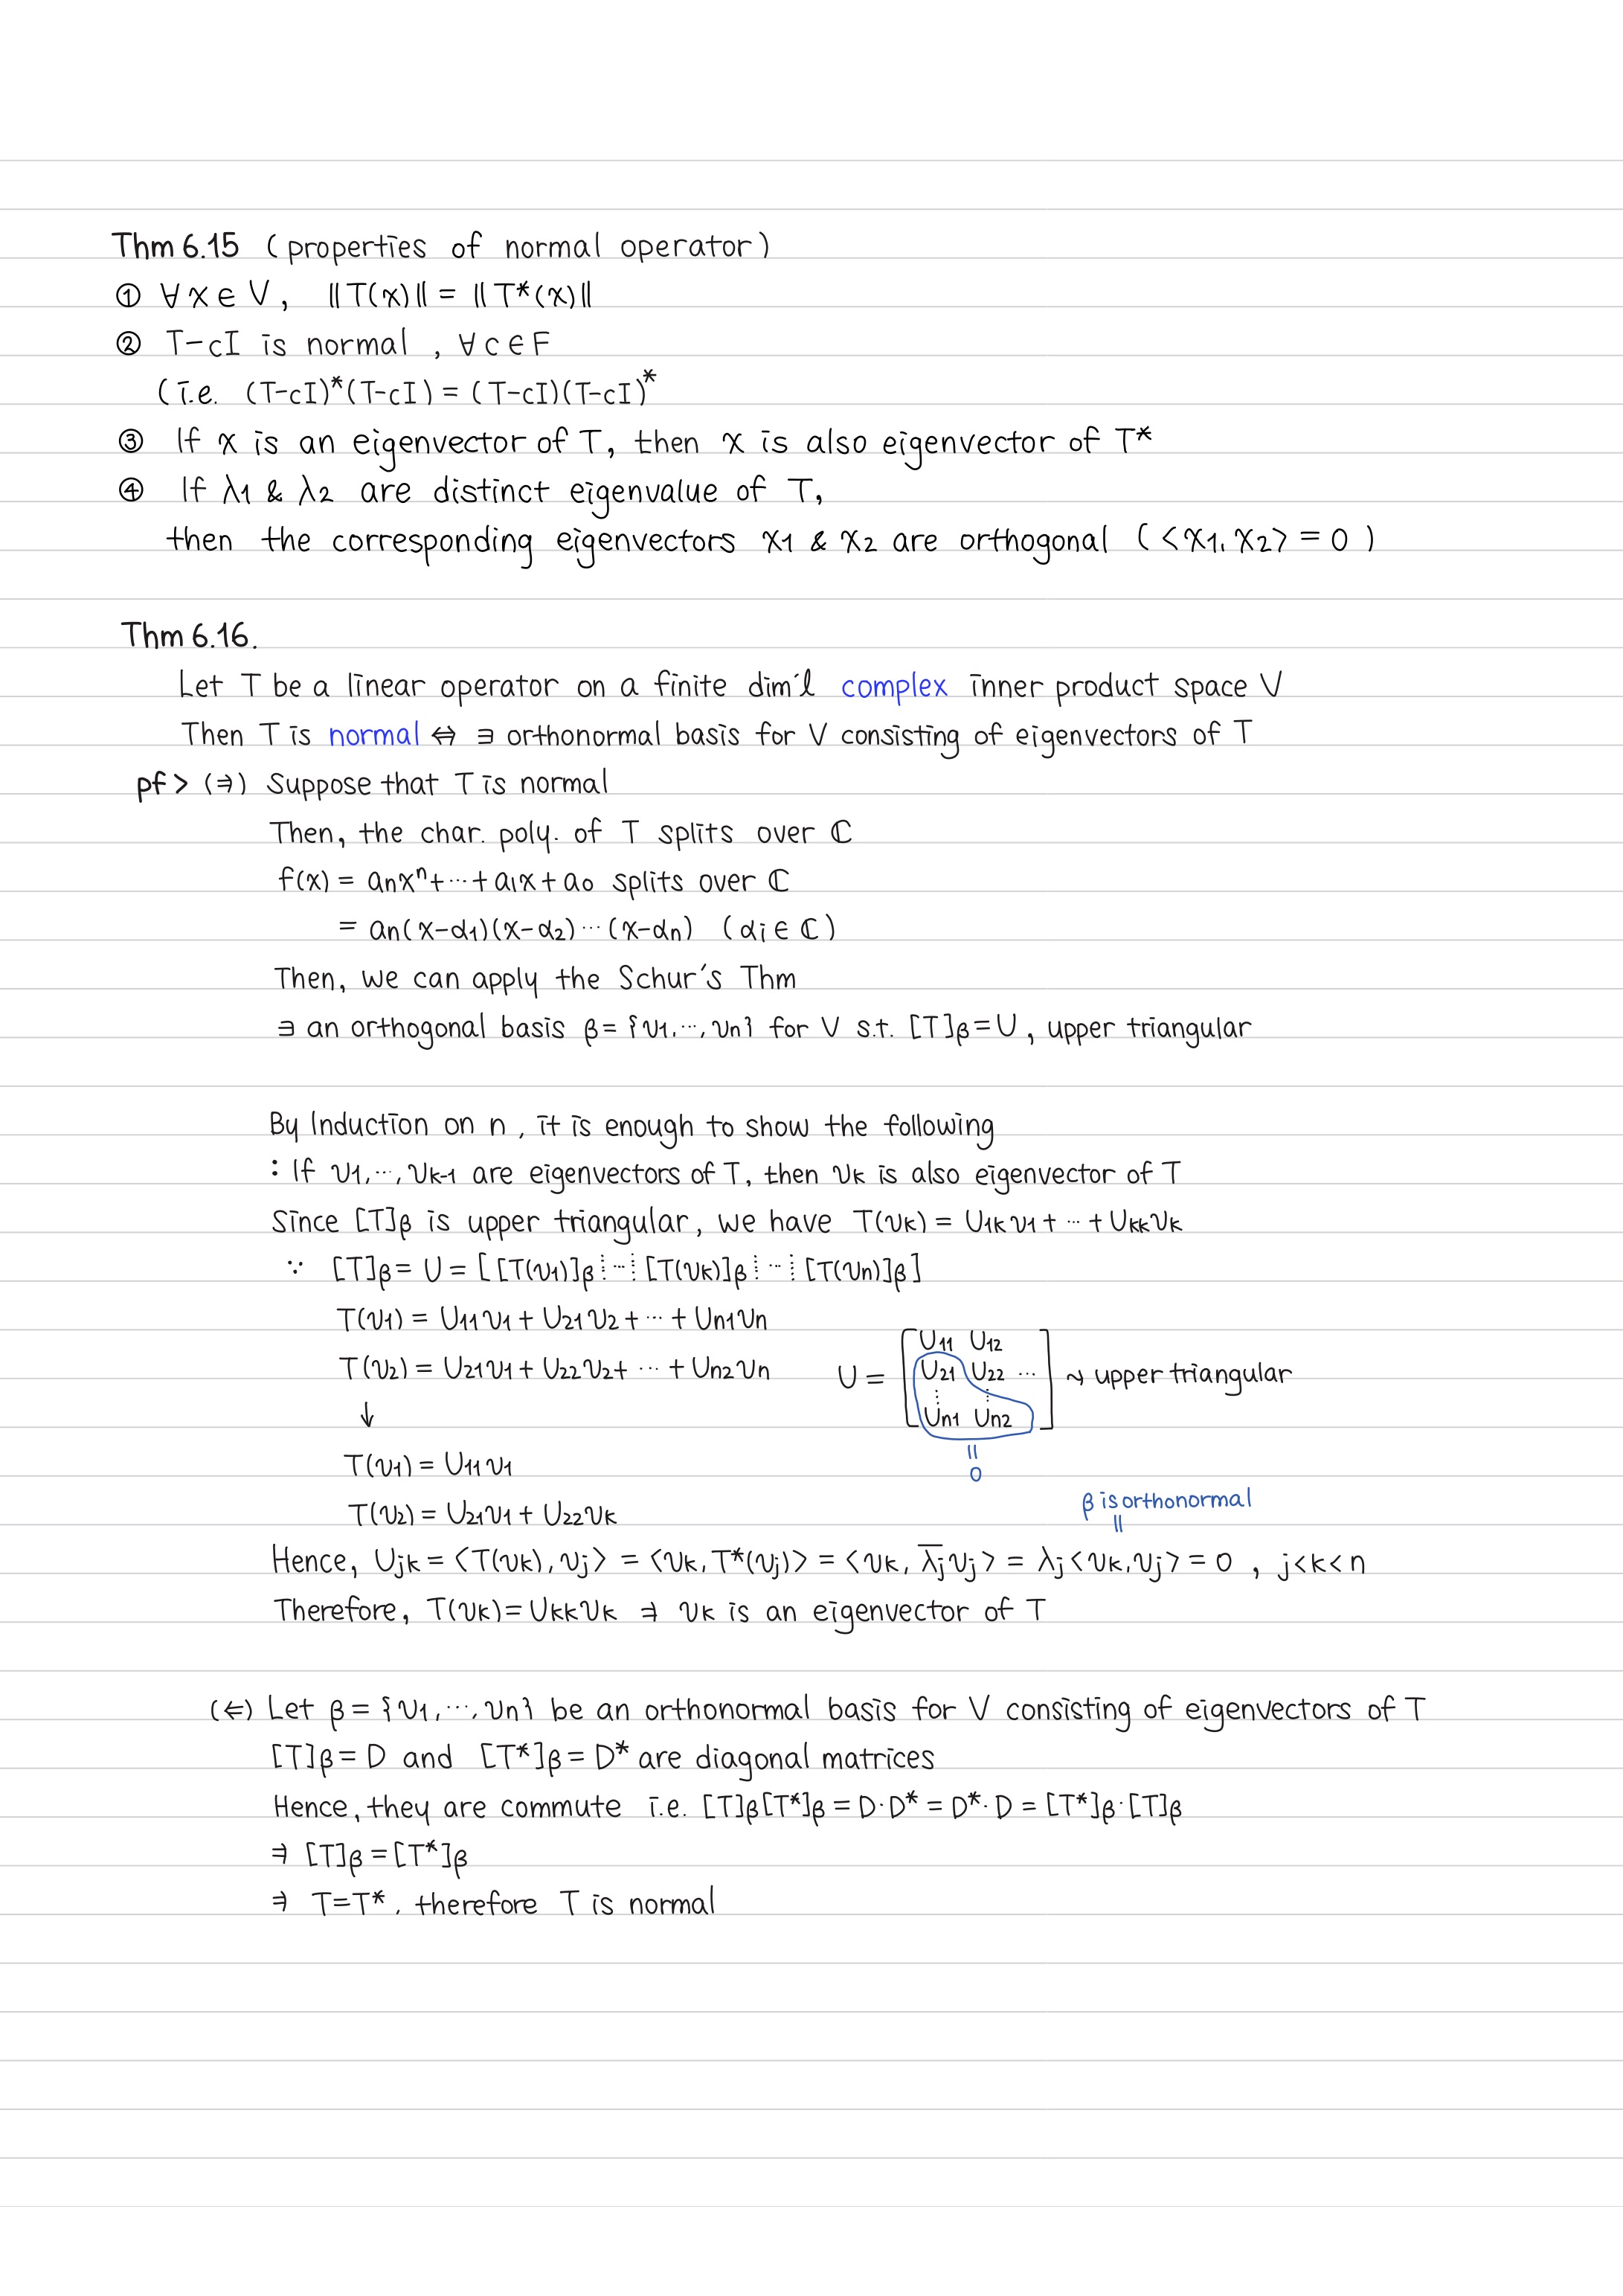 Thm 6.15 (properties of normal operator)
① ∀x∈V, ‖T(x)‖ = ‖T*(x)‖
② T-cI is normal, ∀c∈F
(i.e. (T-cI)*(T-cI) = (T-cI)(T-cI)*
③ If x is an eigenvector of T, then x is also eigenvector of T*
④ If λ1 & λ2 are distinct eigenvalue of T,
then the corresponding eigenvectors x1 & x2 are orthogonal (<x1, x2> = 0)
Thm 6.16.
Let T be a linear operator on a finite dim'l complex inner product space V
Then T is normal ⇔ ∃ orthonormal basis for V consisting of eigenvectors of T
pf> (⇒) Suppose that T is normal
Then, the char. poly. of T splits over ℂ
f(x) = anxⁿ+⋯+a1x+a0 splits over ℂ
= an(x-α1)(x-α2)⋯(x-αn) (αi∈ℂ)
Then, we can apply the Schur's Thm
∃ an orthogonal basis β={v1,⋯,vn} for V s.t. [T]β=U, upper triangular
By Induction on n, it is enough to show the following
: If v1,⋯,vk-1 are eigenvectors of T, then vk is also eigenvector of T
Since [T]β is upper triangular, we have T(vk) = U1kv1+⋯+Ukkvk
∵ [T]β = U = [[T(v1)]β ⋮⋯⋮ [T(vk)]β ⋮⋯⋮ [T(vn)]β]
T(v1) = U11v1 + U21v2 + ⋯ + Un1vn
T(v2) = U21v1 + U22v2+ ⋯ + Un2vn
↓
T(v1) = U11v1
T(v2) = U21v1 + U22vk
U11 U12
U = [U21 U22 ⋯] ⤳ upper triangular
⋮ ⋮
Un1 Un2
=
0
β is orthonormal
=
Hence, Ujk = <T(vk), vj> = <vk, T*(vj)> = <vk, λ̄jvj> = λj<vk, vj> = 0, j<k<n
Therefore, T(vk)=Ukkvk ⇒ vk is an eigenvector of T
(⇐) Let β = {v1,⋯,vn} be an orthonormal basis for V consisting of eigenvectors of T
[T]β = D and [T*]β = D* are diagonal matrices
Hence, they are commute i.e. [T]β[T*]β = D·D* = D*·D = [T*]β·[T]β
⇒ [T]β = [T*]β
⇒ T=T*, therefore T is normal